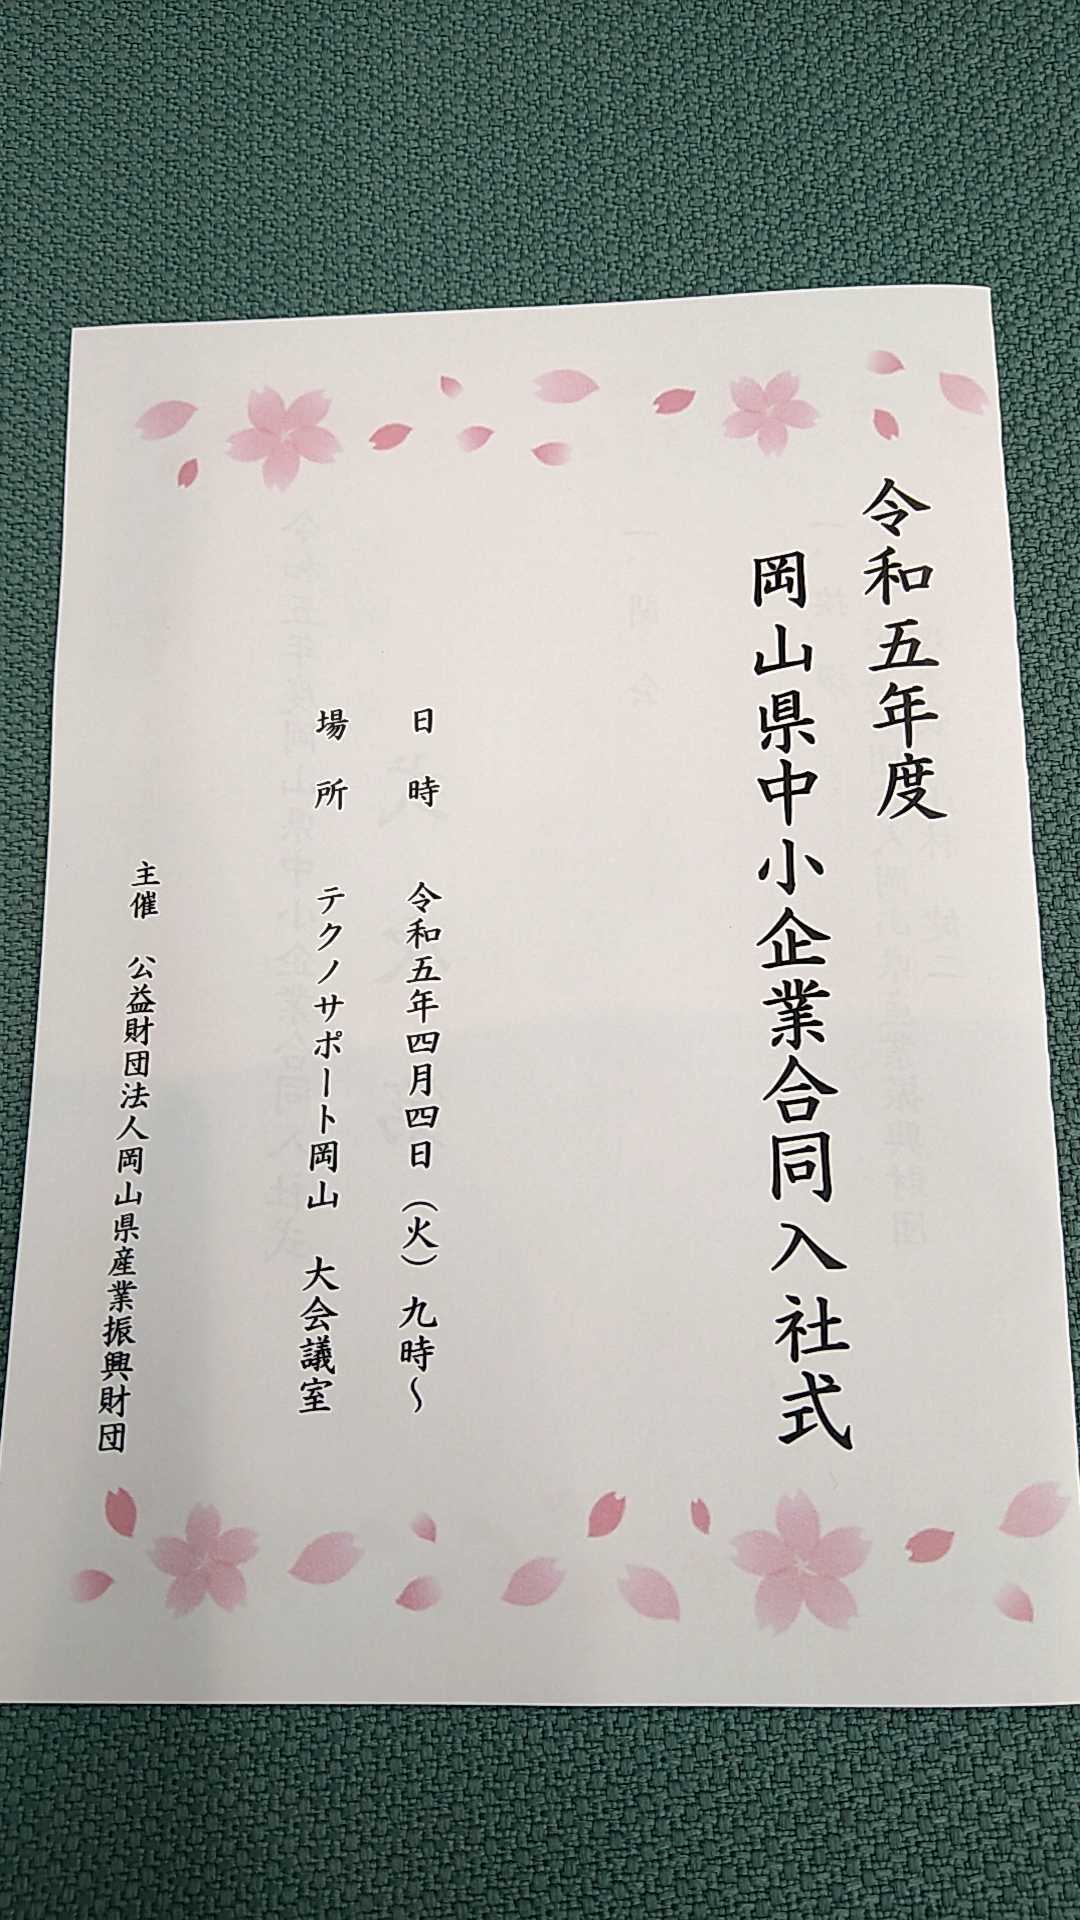 令和五年度
岡山県中小企業合同入社式
日時 令和五年四月四日（火）九時～
場所 テクノサポート岡山 大会議室
主催 公益財団法人岡山県産業振興財団